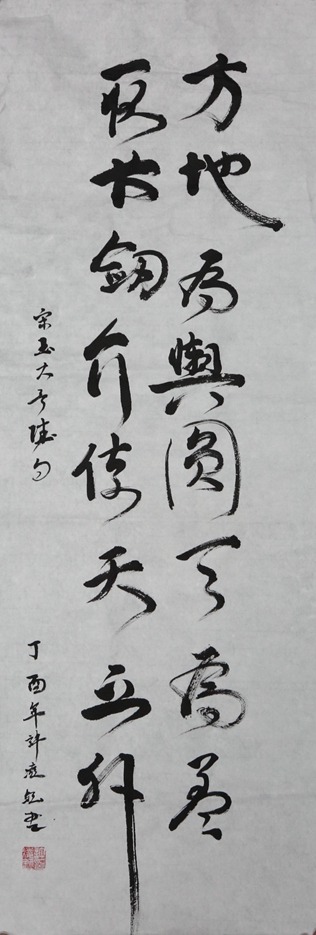 方地為輿圓天為盖
劍介倚天之外
宋玉大言賦句
丁酉年許書